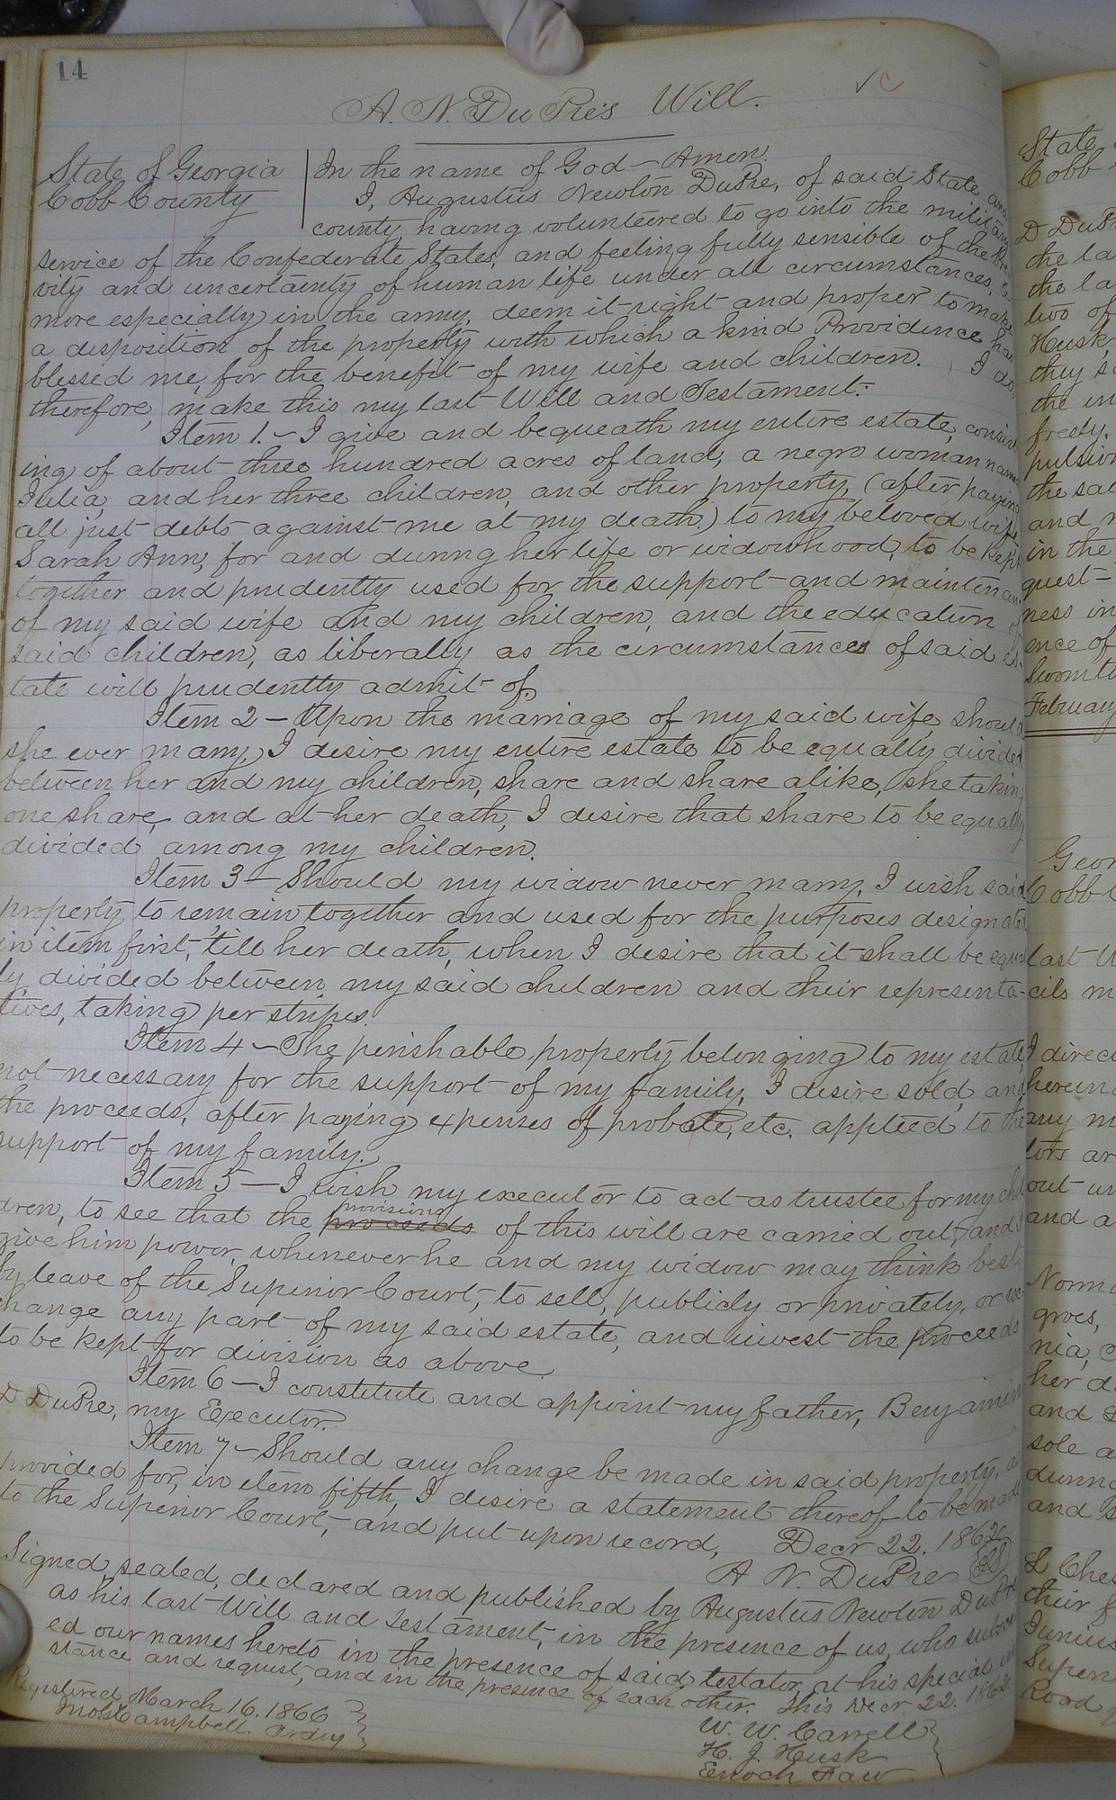 14
A. N. DuPre's Will.
State of Georgia
Cobb County
In the name of God — Amen.
I, Augustus Newton DuPre, of said State and
county, having volunteered to go into the military
service of the Confederate States, and feeling fully sensible of the
vity and uncertainty of human life under all circumstances, &
more especially in the army, deem it right and proper to make
a disposition of the property with which a kind Providence has
blessed me, for the benefit of my wife and children. I do
therefore, make this my last Will and Testament:
Item 1. — I give and bequeath my entire estate, consist
ing of about three hundred acres of land, a negro woman name
Julia, and her three children, and other property, (after paying
all just debts against me at my death,) to my beloved wife
Sarah Ann, for and during her life or widowhood, to be kept
together and prudently used for the support and maintenan
of my said wife and my children, and the education of
said children, as liberally as the circumstances of said es-
tate will prudently admit of.
Item 2 — Upon the marriage of my said wife, should
she ever marry, I desire my entire estate to be equally divided
between her and my children, share and share alike, she taking
one share, and at her death, I desire that share to be equally
divided among my children.
Item 3 — Should my widow never marry, I wish said
property, to remain together and used for the purposes designated
in item first, 'till her death, when I desire that it shall be equal
ly divided between my said children and their representa-
tives, taking per stripes.
Item 4 — The perishable property belonging to my estate,
not necessary for the support of my family, I desire sold, and
the proceeds, after paying expenses of probate, etc. applied to the
support of my family.
Item 5 — I wish my executor to act as trustee for my chil
dren, to see that the proceeds provisions of this will are carried out, and I
give him power, whenever he and my widow may think best,
by leave of the Superior Court, to sell, publicly or privately, or ex
change any part of my said estate, and invest the proceeds
to be kept for division as above.
Item 6 — I constitute and appoint my father, Benjamin
D DuPre, my Executor.
Item 7 — Should any change be made in said property, as
provided for, in item fifth, I desire a statement thereof to be made
to the Superior Court, and put upon record, Decr 22. 1862
A N. DuPre LS
Signed, sealed, declared and published by Augustus Newton DuPre
as his last Will and Testament, in the presence of us, who subscri
ed our names hereto in the presence of said testator, at his special in
stance and request, and in the presence of each other. This Decr 22. 1862.
W. W. Carrell
H. J. Husk
Enoch Faw
Registered March 16. 1866
Jno G Campbell. Ordry
State
Cobb
D DuPr
the la
the la
two of
Husk
they s
the in
freely.
pulsion
the sai
and
in the
quest
ness in
ence of
Sworn to
February
Geor
Cobb
last W
cils m
I direc
herein
any m
tors ar
out
and a
Norm
groes,
nia, C
her d
and
sole a
during
and s
L Che
their f
Junius
Superi
Road